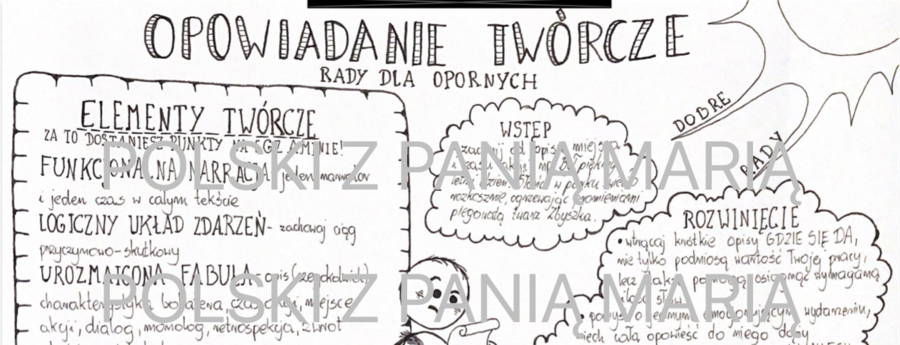 OPOWIADANIE TWÓRCZE
RADY DLA OPORNYCH
ELEMENTY TWÓRCZE
ZA TO DOSTANIESZ PUNKTY NA EGZAMINIE!
FUNKCJONALNA NARRACJA jeden narrator
i jeden czas w całym tekście
LOGICZNY UKŁAD ZDARZEŃ - zachowaj ciąg
przyczynowo-skutkowy
UROZMAICONA FABUŁA - opis
charakterystyka bohatera, czas akcji, miejsce
akcji, dialog, monolog, retrospekcja, zwrot
WSTĘP
zacznij od opisu miejsca
i czasu
letni dzień. Słońce w parku
rozkosznie, ogrzewając promieniami
piegowatą twarz Zbyszka.
DOBRE
RADY
ROZWINIĘCIE
• wtrącaj krótkie opisy GDZIE SIĘ DA,
nie tylko podniosą wartość Twojej pracy,
lecz także pomogą osiągnąć wymaganą
ilość słów
• pomyśl o jednym emocjonującym wydarzeniu,
niech cała opowieść do niego dąży
POLSKI Z PANIĄ MARIĄ
POLSKI Z PANIĄ MARIĄ